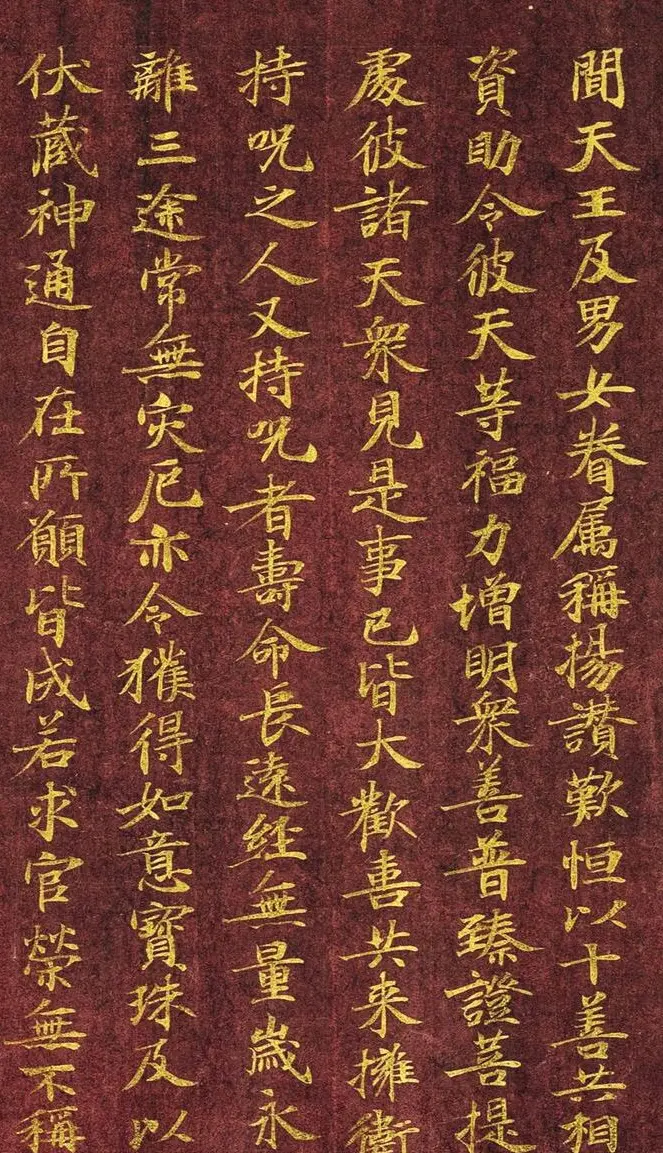 聞天王及男女眷属稱揚讃歎恒以十善共相
資助令彼天等福力增明衆善普臻證菩提
處彼諸天衆見是事已皆大歡喜共来擁衛
持呪之人又持呪者壽命長遠經無量歲永
離三途常無灾厄亦令獲得如意寶珠及以
伏藏神通自在所願皆成若求官榮無不稱